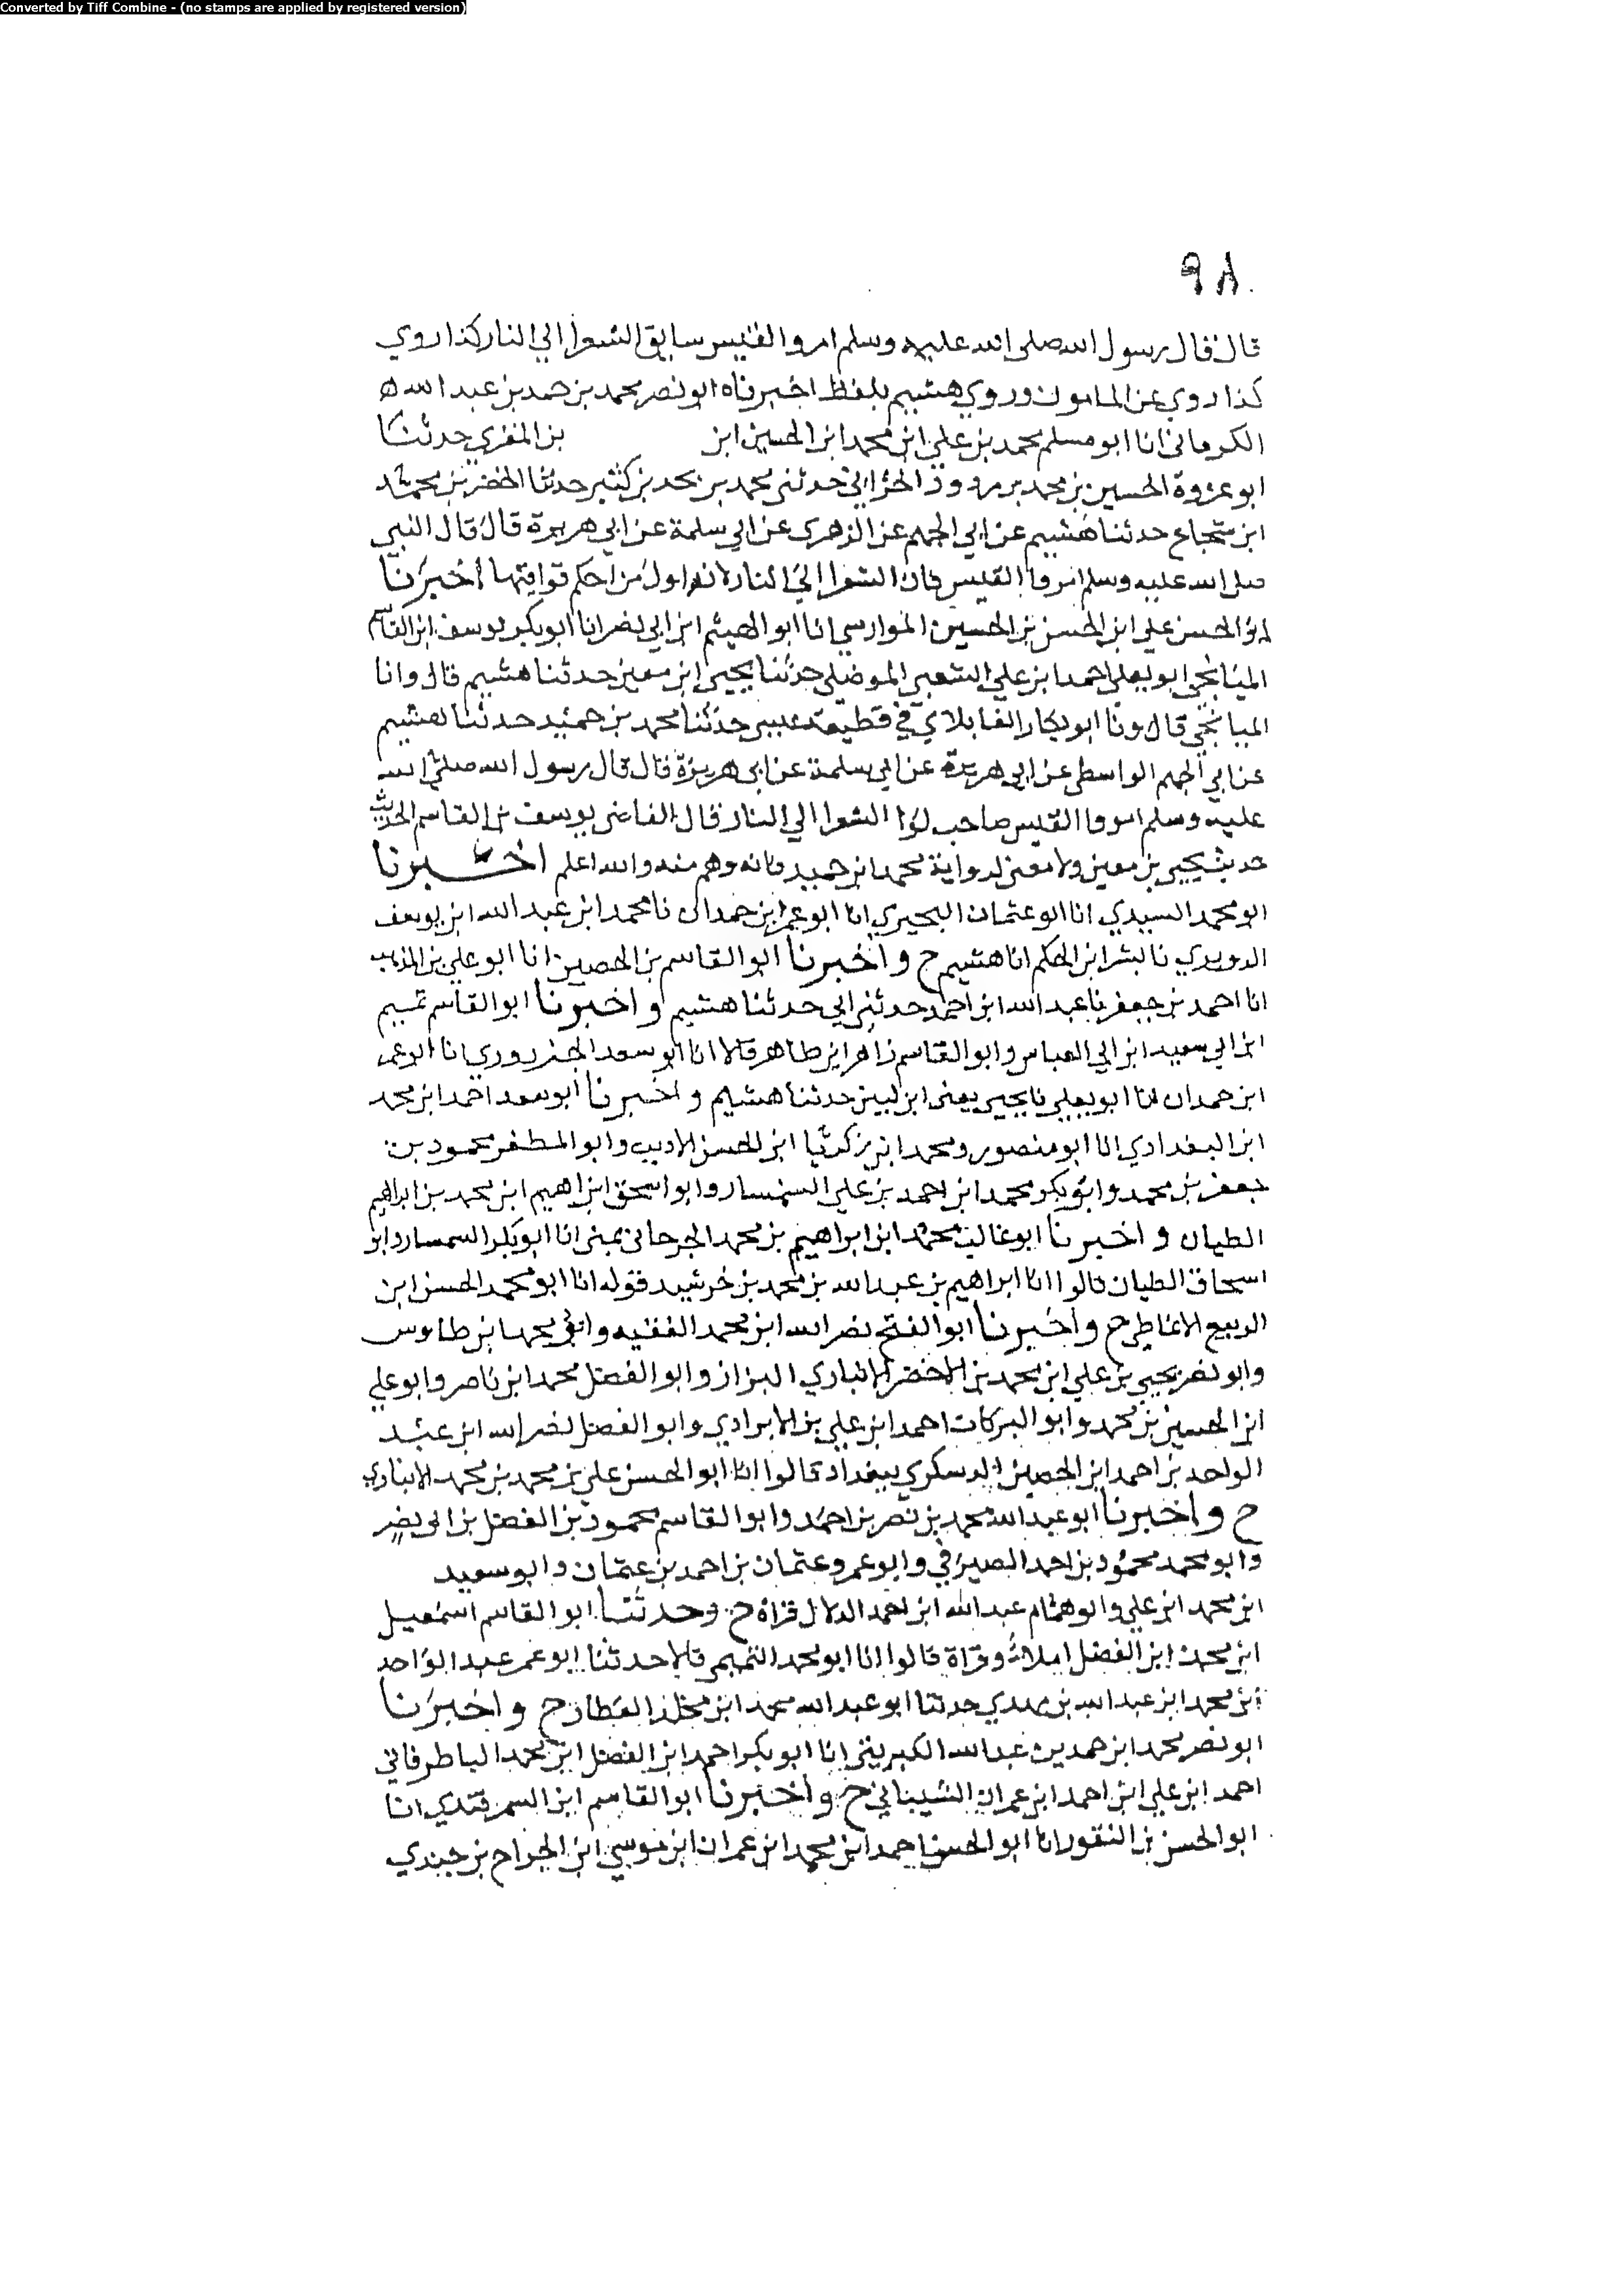 Converted by Tiff Combine - (no stamps are applied by registered version)
٩٨
قال قال رسول الله صلى الله عليه وسلم امرو القيس سابق الشعرا الي النار كذا روي
كذا روي عن المامون وروي هشيم بلفظ اخبرناه ابو نصر محمد بن حمد بن عبد الله
الكرماني انا ابو مسلم محمد بن علي ابن محمد ابن الحسين ابن بن المقري حدثنا
ابو عروة الحسين بن محمد بن مودود الحراني حدثني محمد بن محمد بن كثير حدثنا الخضر بن محمد
ابن شجاع حدثنا هشيم عن ابي الجهم عن الزهري عن ابي سلمة عن ابي هريرة قال قال النبي
صلى الله عليه وسلم امرؤ القيس قائد الشعرا الي النار لانه اول من احكم قوافيها اخبرنا
ابو الحسن علي ابن الحسن بن الحسين الموازيني انا ابو الهيثم ابن ابي نصر انا ابو بكر يوسف ابن القاسم
الميانجي ابو يعلي احمد ابن علي الموصلي حدثنا يحيي ابن معين حدثنا هشيم قال وانا
الميانجي قال ونا ابو بكار في قطيعة حدثنا محمد بن حميد حدثنا هشيم
عن ابي الجهم الواسطي عن ابي هريرة عن ابي سلمة عن ابي هريرة قال قال رسول الله صلى الله
عليه وسلم امرؤ القيس صاحب لوا الشعرا الي النار قال القاضي يوسف بن القاسم الحديث
حديث يحيي بن معين ولا معني لرواية محمد ابن حميد فانه وهم منه والله اعلم اخبرنا
ابو محمد السيدي انا ابو عثمان البحيري انا ابو عمر ابن حمدان نا محمد ابن عبد الله ابن يوسف
الدويري نا بشر ابن الحكم انا هشيم ح واخبرنا ابو القاسم بن الحصين انا ابو علي بن المذهب
انا احمد بن جعفر نا عبد الله ابن احمد حدثني ابي حدثنا هشيم واخبرنا ابو القاسم تميم
ابن ابي سعيد ابن ابي العباس وابو القاسم زاهر ابن طاهر قالا انا ابو سعد الجنزروري انا ابو عمر
ابن حمدان انا ابو يعلي نا يحيي يعني ابن حدثنا هشيم واخبرنا ابو سعد احمد ابن محمد
ابن البغدادي انا ابو منصور ومحمد ابن زكريا ابن الحسن الاديب وابو المظفر محمود بن
جعفر بن محمد وابو بكر محمد ابن احمد بن علي السمسار وابو اسحق ابراهيم ابن محمد بن ابراهيم
الطيان واخبرنا ابو غالب محمد ابن ابراهيم بن محمد الجرجاني بمني انا ابو بكر السمسار وابو
اسحاق الطيان قالوا انا ابراهيم بن عبد الله بن محمد بن خرشيد قوله انا ابو محمد الحسن ابن
الربيع الانماطي ح واخبرنا ابو الفتح نصر الله ابن محمد الفقيه وابو محمد ابن طاوس
وابو نصر يحيي بن علي ابن محمد بن الاخضر الانباري البزاز وابو الفضل محمد ابن ناصر وابو علي
ابن الحسين بن محمد وابو البركات احمد ابن علي بن الابرادي وابو الفضل نصر الله ابن عبد
الواحد بن احمد ابن الحصين الدسكري ببغداد قالوا انا ابو الحسن علي بن محمد بن محمد الانباري
ح واخبرنا ابو عبد الله محمد بن نصر بن احمد وابو القاسم محمود بن الفضل بن ابي نصر
وابو محمد محمود بن احمد الصيرفي وابو عمرو عثمان بن احمد بن عثمان وابو سعيد
ابن محمد ابن علي وابو همام عبد الله ابن احمد الدلال قراة ح وحدثنا ابو القاسم اسمعيل
ابن محمد ابن الفضل املاء وقراة قالوا انا ابو محمد التميمي قالا حدثنا ابو عمر عبد الواحد
ابن محمد ابن عبد الله بن مهدي حدثنا ابو عبد الله محمد ابن مخلد العطار ح واخبرنا
ابو نصر محمد ابن حمد بن عبد الله الكبريتي انا ابو بكر احمد ابن الفضل ابن محمد الباطرقاني
احمد ابن علي ابن احمد ابن عمران الشيباني ح واخبرنا ابو القاسم ابن السمرقندي انا
ابو الحسن بن النقور انا ابو الحسن احمد ابن محمد ابن عمران ابن موسي ابن الجراح بن جندي